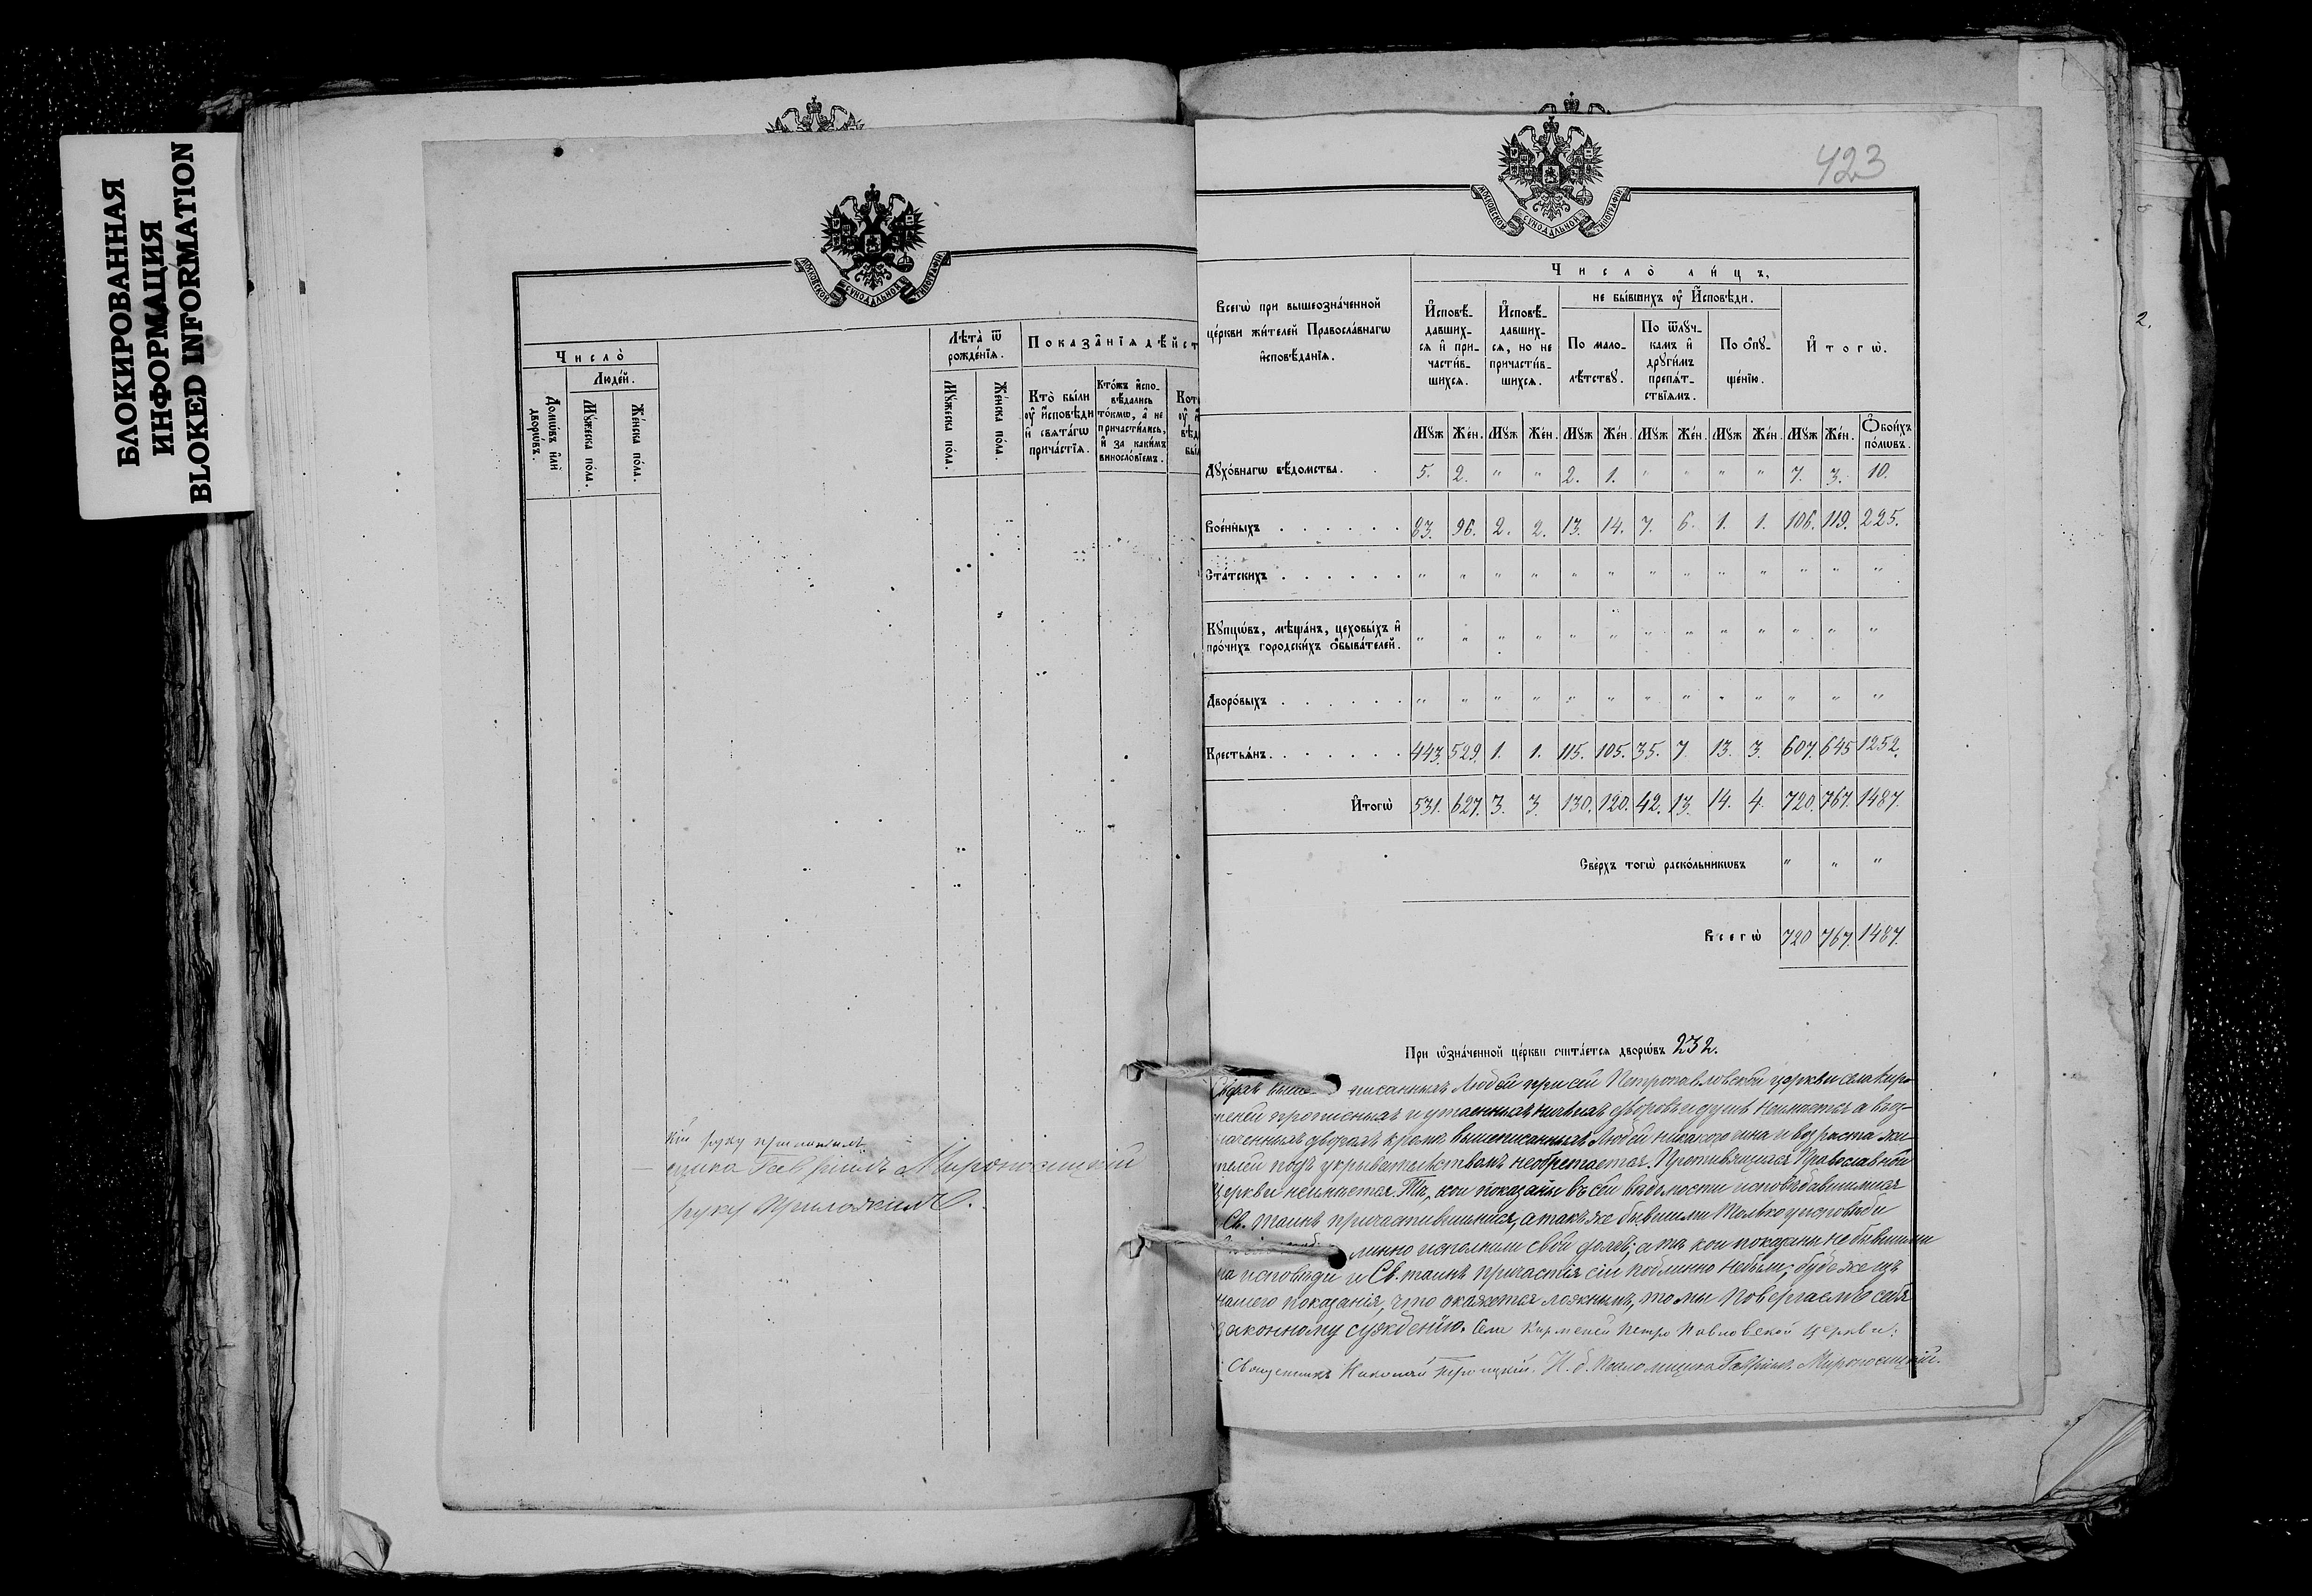 БЛОКИРОВАННАЯ
ИНФОРМАЦИЯ
BLOKED INFORMATION
МОСКОВСКОЙ СѴНОДАЛЬНОЙ ТИПОГРАФІИ
Число̀
Людéй.
Домѡ́въ и҆лѝ дворѡ́въ.
Мꙋ́жеска по́ла.
Же́нска по́ла.
Лѣ́та ѿ рожде́нїѧ.
Мꙋ́жеска по́ла.
Же́нска по́ла.
Показа̑нїѧ дѣ́йст
Кто̀ бы́ли ᲂу҆ и҆́сповѣди и҆ свѧта́гѡ прича́стїѧ.
Кто́жъ и҆спо-
вѣ́дались
то́кмѡ, а҆ не
причасти́лись,
и҆ за каки́мъ
винносло́вїемъ.
кій руку приложилъ
щика Гавріилъ Мироносицкій
руку приложилъ.
423
МОСКОВСКОЙ СѴНОДАЛЬНОЙ ТИПОГРАФІИ
Всегѡ̀ при вышеозна́ченной
це́ркви жи́телей Правосла́внагѡ
и҆сповѣ́данїѧ.
Число̀ ли́цъ,
И҆сповѣ́-
давших-
сѧ и҆ при-
части́в-
шихсѧ.
И҆сповѣ́-
давших-
сѧ, но не
причасти́в-
шихсѧ.
не бы́вшихъ ᲂу҆ И҆́сповѣди.
По мало-
лѣ́тствꙋ.
По ѿлꙋ́ч-
камъ и҆
дрꙋги̑мъ
препѧ́т-
ствїѧмъ.
По ѻ҆пꙋ-
ще́нїю.
И҆того̀.
Мꙋж Же́н. Мꙋж Же́н. Мꙋж Же́н. Мꙋж Же́н. Мꙋж Же́н. Мꙋж Же́н. Ѻ҆бои́хъ по́лѡвъ.
Дꙋхо́внагѡ вѣ́домства. 5. 2. " " 2. 1. " " " " 7. 3. 10.
Вое́нныхъ 83. 96. 2. 2. 13. 14. 7. 6. 1. 1. 106. 119. 225.
Ста́тскихъ " " " " " " " " " " " " "
Кꙋпцѡ́въ, мѣща́нъ, цеховы́хъ и҆
про́чихъ городски́хъ ѻ҆быва́телей. " " " " " " " " " " " " "
Дворо́выхъ " " " " " " " " " " " " "
Крестьѧ́нъ 443. 529. 1. 1. 115. 105. 35. 7. 13. 3. 607. 645 1252.
И҆того̀ 531. 627. 3. 3. 130. 120. 42. 13. 14. 4. 720. 767. 1487.
Све́рхъ тогѡ̀ раско́льникѡвъ " " "
Всегѡ̀ 720 767. 1487.
При ѡ҆зна́ченной це́ркви счита́етсѧ дворѡ́въ 232.
писанныхъ людей при сей Петропавловской церкви села Кирме-
ней прописныхъ и утаенныхъ дворовъ и душъ неимеется а въоз-
наченныхъ дворахъ кромѣ вышеписанныхъ людей никакого чина и возраста жи-
телей подъ укрывательствомъ необретается. Противящихся Православной
Церкви неимеется. Тѣ, кои показаны въ сей ведомости исповѣдавшимися
Св. таинъ причастившимися, а также бывшими только у исповѣди
линно исполнили свой долгъ; а тѣ кои показаны не бывшими
на исповѣди и Св. таинъ причастія сіи подлинно небыли; буде же изъ
нашего показанія, что окажется ложнымъ, то мы повергаемъ себя
законному сужденію. Села Кирменей Петро Павловской церкви:
Священникъ Николай Троицкій. И. д. Псаломщика Гавріилъ Мироносицкій.
2.